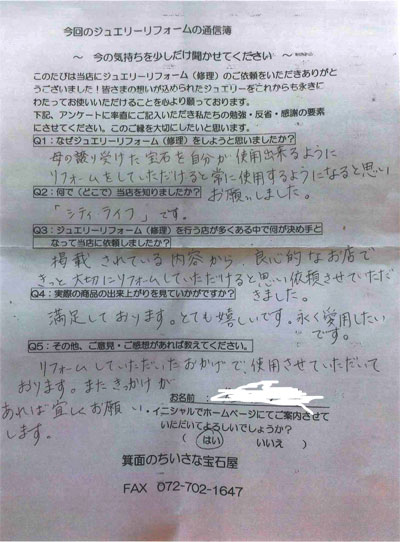 今回のジュエリーリフォームの通信簿
～ 今の気持ちを少しだけ聞かせてください ～
このたびは当店にジュエリーリフォーム（修理）のご依頼をいただきありがと
うございました！皆さまの想いが込められたジュエリーをこれからも永きに
わたってお使いいただけることを心より願っております。
下記、アンケートに率直にご記入いただき私たちの勉強・反省・感謝の要素
にさせてください。このご縁を大切にしたいと思います。
Q1：なぜジュエリーリフォームをしようと思いましたか？
母の譲り受けた宝石を自分が使用出来るように
リフォームをしていただけると常に使用するようになると思い
お願いしました。
Q2：何で（どこで）当店を知りましたか？
「シティライフ」です。
Q3：ジュエリーリフォームを行う店が多くある中で何が決め手と
なって当店に依頼しましたか？
掲載されている内容から 良心的なお店で
きっと大切にリフォームしていただけると思い依頼させていただ
きました。
Q4：実際の商品の出来上がりを見ていかがですか？
満足しております。とても嬉しいです。永く愛用したい
です。
Q5：その他、ご意見・ご感想があれば教えてください。
リフォームしていただいたおかげで、使用させていただいて
おります。またきっかけが
あれば宜しくお願い
します。
お名前：
・イニシャルでホームページにてご案内させて
いただいてよろしいでしょうか？
（ はい いいえ ）
箕面のちいさな宝石屋
FAX 072-702-1647